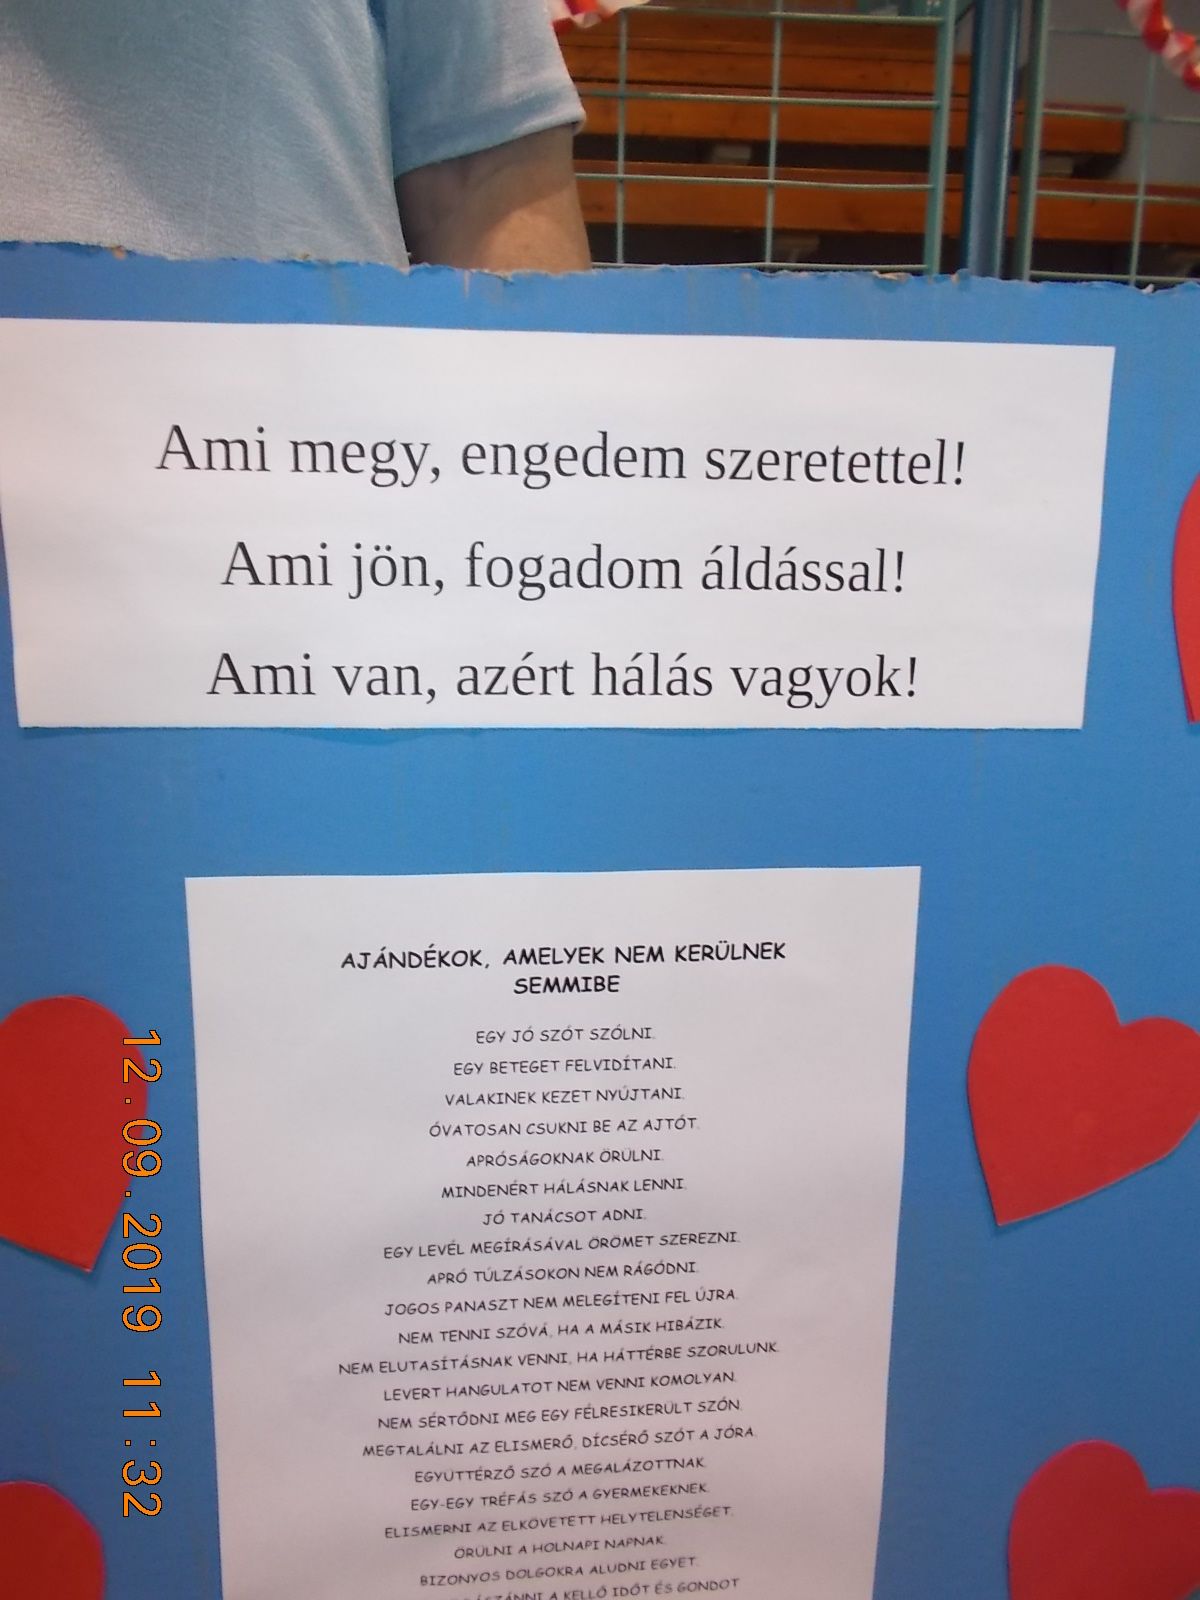 Ami megy, engedem szeretettel!
Ami jön, fogadom áldással!
Ami van, azért hálás vagyok!
AJÁNDÉKOK, AMELYEK NEM KERÜLNEK
SEMMIBE
EGY JÓ SZÓT SZÓLNI.
EGY BETEGET FELVIDÍTANI.
VALAKINEK KEZET NYÚJTANI.
ÓVATOSAN CSUKNI BE AZ AJTÓT.
APRÓSÁGOKNAK ÖRÜLNI.
MINDENÉRT HÁLÁSNAK LENNI.
JÓ TANÁCSOT ADNI.
EGY LEVÉL MEGÍRÁSÁVAL ÖRÖMET SZEREZNI.
APRÓ TÚLZÁSOKON NEM RÁGÓDNI.
JOGOS PANASZT NEM MELEGÍTENI FEL ÚJRA.
NEM TENNI SZÓVÁ, HA A MÁSIK HIBÁZIK.
NEM ELUTASÍTÁSNAK VENNI, HA HÁTTÉRBE SZORULUNK.
LEVERT HANGULATOT NEM VENNI KOMOLYAN.
NEM SÉRTŐDNI MEG EGY FÉLRESIKERÜLT SZÓN.
MEGTALÁLNI AZ ELISMERŐ, DÍCSÉRŐ SZÓT A JÓRA.
EGYÜTTÉRZŐ SZÓ A MEGALÁZOTTNAK.
EGY-EGY TRÉFÁS SZÓ A GYERMEKEKNEK.
ELISMERNI AZ ELKÖVETETT HELYTELENSÉGET.
ÖRÜLNI A HOLNAPI NAPNAK.
BIZONYOS DOLGOKRA ALUDNI EGYET.
A KELLŐ IDŐT ÉS GONDOT
12.09.2019 11:32